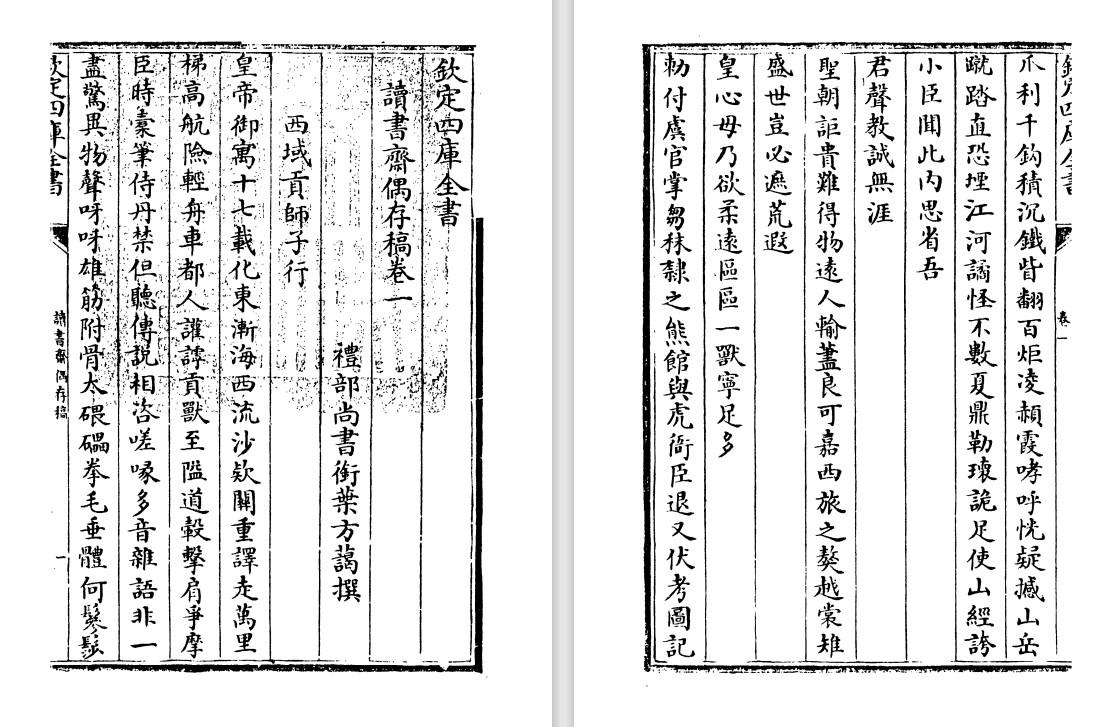 欽定四庫全書
讀書齋偶存稿卷一
禮部尚書銜葉方藹撰
西域貢師子行
皇帝御寓十七載化東漸海西流沙欵關重譯走萬里
梯高航險輕舟車都人讙譁貢獸至隘道轂擊肩爭摩
臣時橐筆侍丹禁但聽傳說相咨嗟喙多音雜語非一
盡驚異物聲呀呀雄筋附骨太碨礧拳毛垂體何鬖髿
欽定四庫全書
讀書齋偶存稿
一
欽定四庫全書
卷一
爪利千鈎積沉鐵眥翻百炬凌赬霞哮呼恍疑撼山岳
蹴踏直恐堙江河譎怪不數夏鼎勒瓌詭足使山經誇
小臣聞此内思省吾
君聲教誠無涯
聖朝詎貴難得物遠人輸藎良可嘉西旅之獒越裳雉
盛世豈必遮荒遐
皇心毋乃欲柔遠區區一獸寧足多
勅付虞官掌芻秣隸之熊館與虎衙臣退又伏考圖記